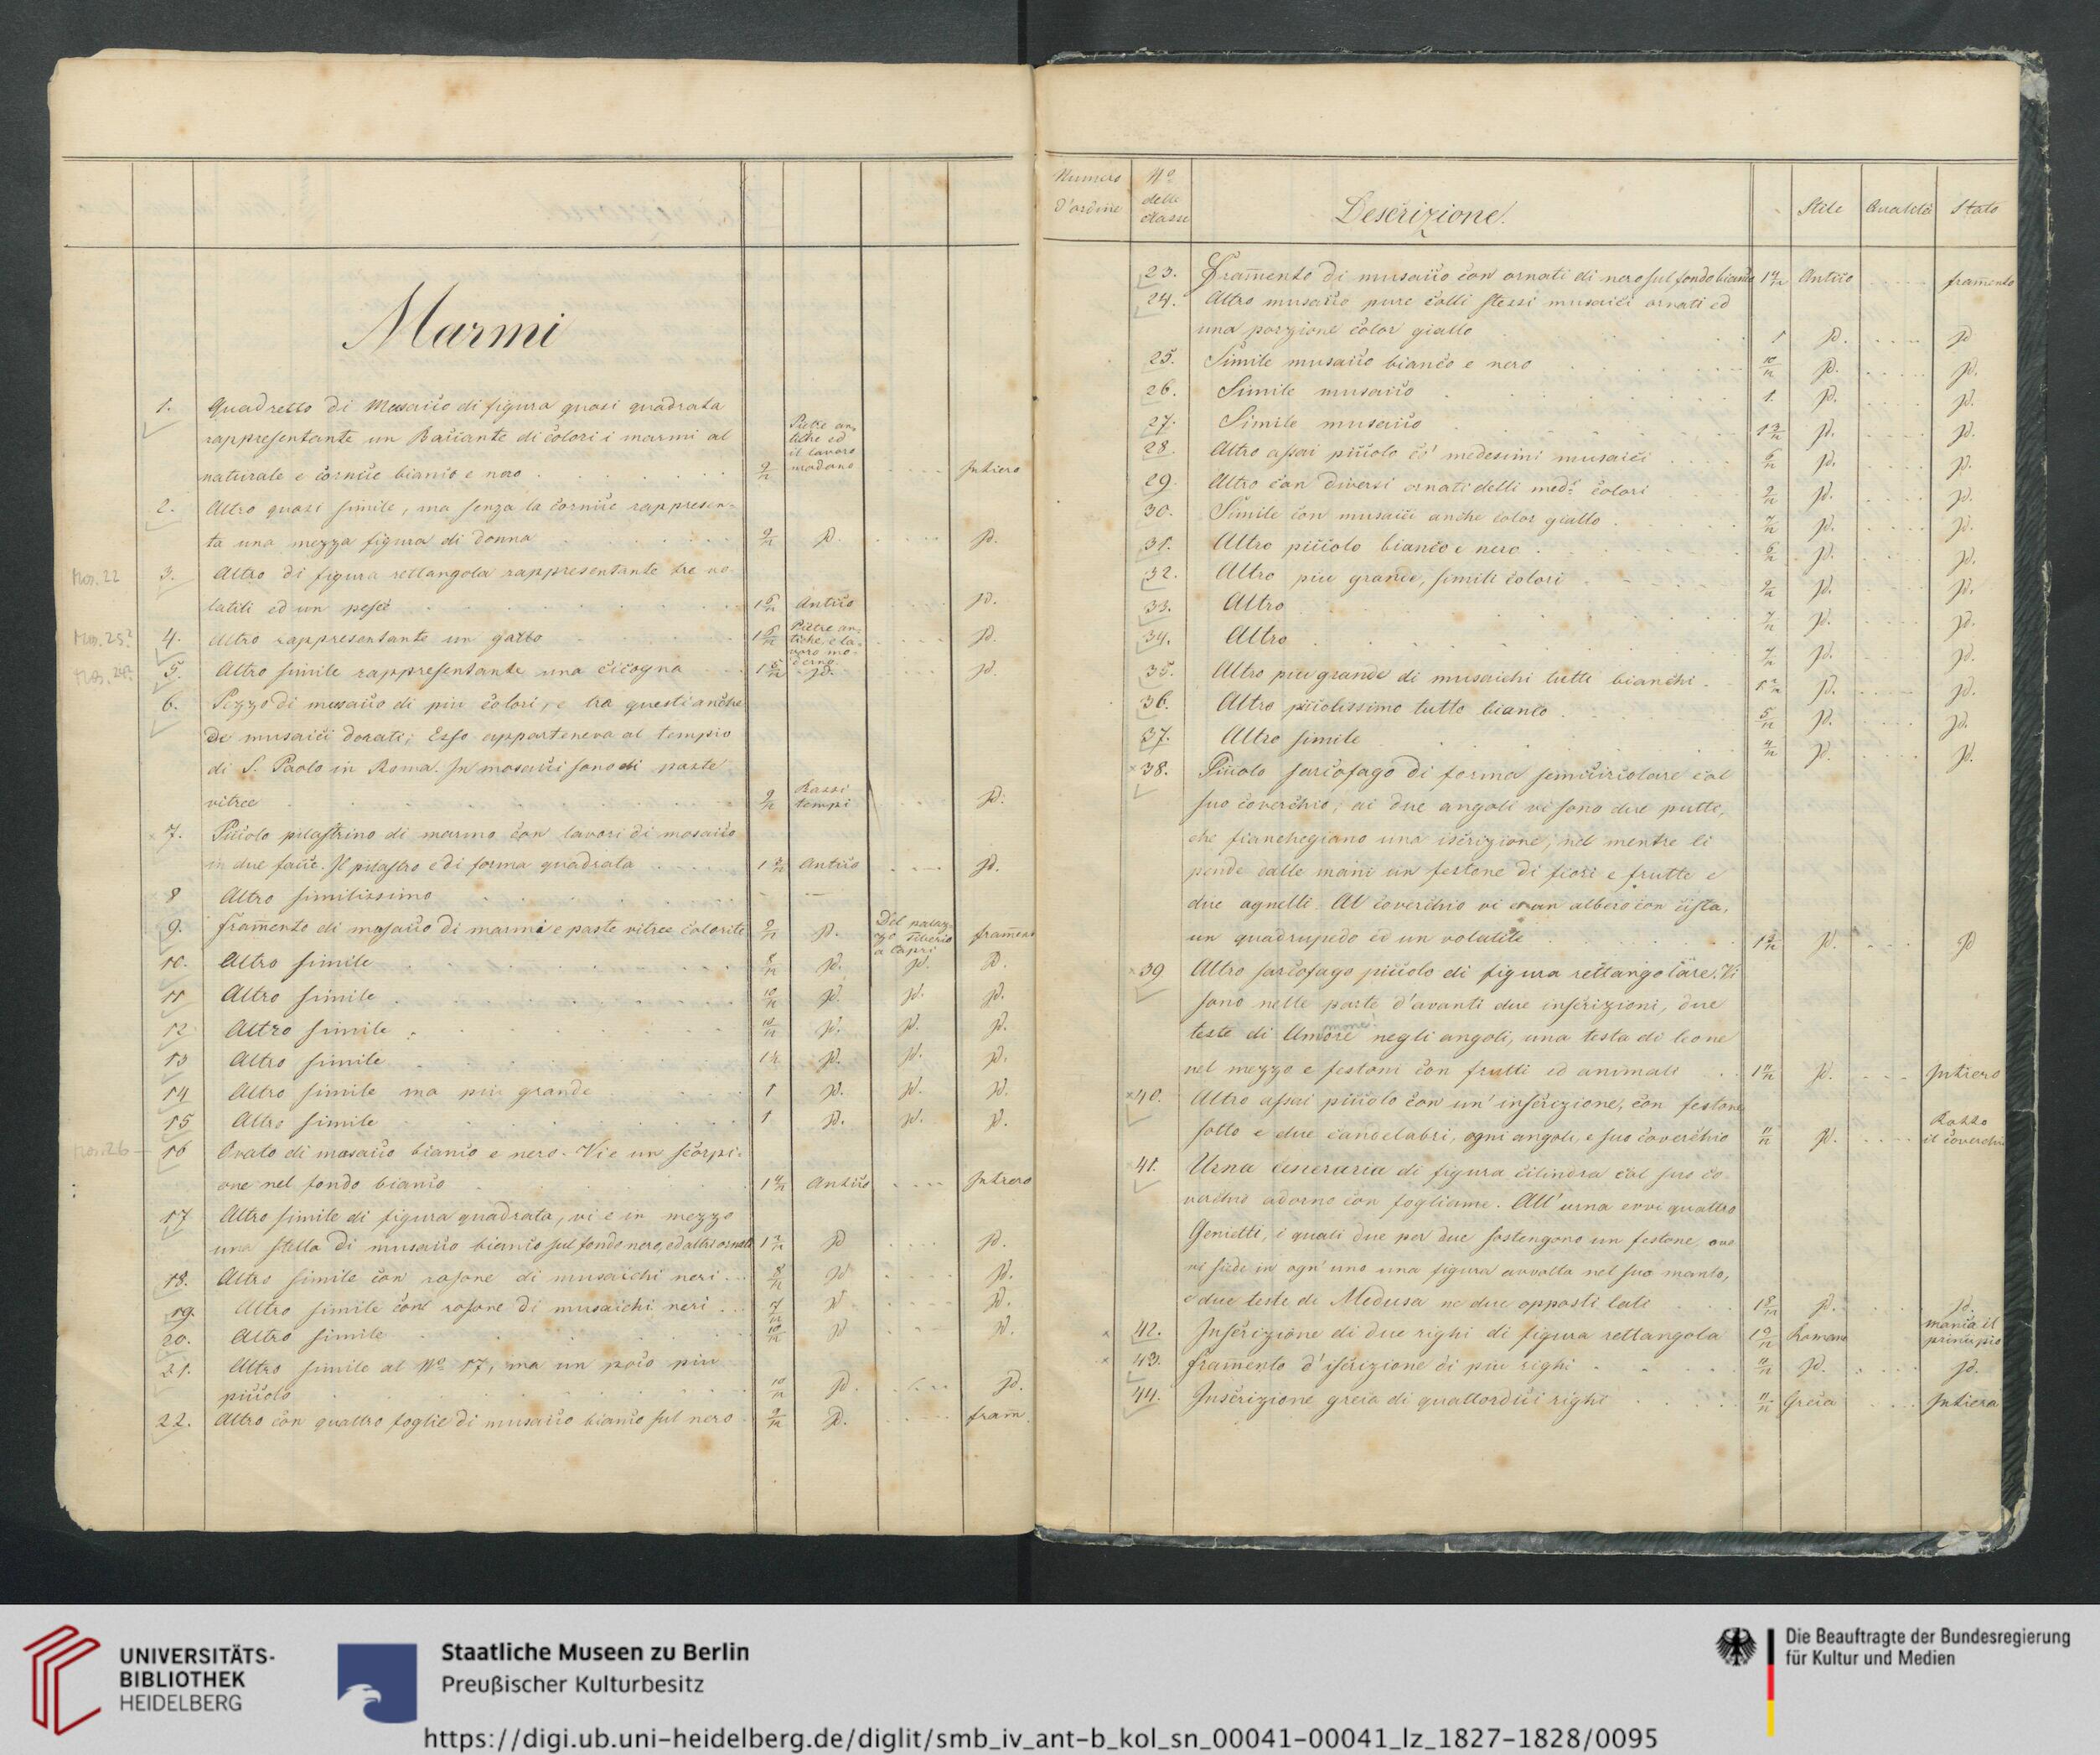 Marmi
1. Quadretto di Mosaico di figura quasi quadrata
rappresentante un Baccante di colori i marmi al
naturale e cornice bianco e nero 9/12 Pietre antiche ed il lavoro moderno Intiero
2. Altro quasi simile, ma senza la cornice rappresen-
ta una mezza figura di donna 9/12 id. id.
Mos. 22 3. Altro di figura rettangola rappresentante tre vo-
latili ed un pesce 1 6/12 Antico id.
Mos. 25? 4. Altro rappresentante un gallo 1 6/12 Pietre antiche, e lavoro moderno id.
5. Altro simile rappresentante una cicogna id. id.
6. Pezzo di musaico di più colori, e tra questi anche
de' musaici dorati; Esso apparteneva al tempio
di S. Paolo in Roma. In mosaici sono di paste
vitree 9/12 Bassi tempi id.
7. Piccolo pilastrino di marmo con lavori di mosaico
in due facce. Il pilastro è di forma quadrata Antico id.
8 Altro similissimo
9. frammento di mosaico di marmi e paste vitree colorite 9/12 id. Del palazzo Tiberio a Capri
10. Altro simile 8/12 id. id. id.
11 Altro simile 10/12 id. id. id.
12 Altro simile id. id. id.
13 Altro simile id. id. id.
14 Altro simile ma più grande 1 id. id. id.
15 Altro simile 1 id. id. id.
Mos. 26 16 Ovato di mosaico bianco e nero. Vi è un scorpi-
one nel fondo bianco Antico Intiero
17 Altro simile di figura quadrata, vi è in mezzo
una stella di musaico bianco sul fondo nero, ed altri ornati id id.
18. Altro simile con rosone di musaichi neri 8/12 id id.
19. Altro simile con rosone di musaichi neri 7/12 id id.
20. Altro simile 10/12 id id.
21. Altro simile al No. 17, ma un poco più
piccolo 10/12 id. id.
22. Altro con quattro foglie di musaico bianco sul nero 9/12 id. fram.
Numero d'ordine No. delle classi Descrizione. Stile Qualità Stato
23. Frammento di musaico con ornati di nero sul fondo bianco Antico frammento
24. Altro musaico pure colli stessi musaici ornati ed
una porzione color giallo 1 id. id
25. Simile musaico bianco e nero 10/12 id. id.
26. Simile musaico 1. id. id.
27. Simile musaico id. id.
28. Altro assai piccolo co' medesimi musaici 6/12 id. id.
29. Altro con diversi ornati delli med.i colori 9/12 id. id.
30. Simile con musaici anche color giallo 7/12 id. id.
31. Altro piccolo bianco e nero 6/12 id. id.
32. Altro più grande, simili colori 9/12 id. id.
33. Altro 7/12 id. id.
34. Altro 7/12 id. id.
35. Altro più grande di musaichi tutti bianchi id. id.
36. Altro piccolissimo tutto bianco 5/12 id. id.
37. Altro simile 4/12 id. id.
38. Piccolo sarcofago di forma semicircolare col
suo coverchio; ai due angoli vi sono due putti,
che fiancheggiano una iscrizione; nel mentre li
pende dalle mani un festone di fiori e frutte e
due agnelli. Al coverchio vi è un albero con cista,
un quadrupedo ed un volatile id. id
39 Altro sarcofago piccolo di figura rettangolare. Vi
sono nelle parte d'avanti due inscrizioni, due
teste di Amore negli angoli, una testa di leone
nel mezzo e festoni con frutti ed animali id. Intiero
40. Altro assai piccolo con un' inscrizione, con festone
sotto e due candelabri, ogni angoli, e suo coverchio 11/12 id. Rotto il coverchio
41. Urna cineraria di figura cilindra col suo co-
verchio adorno con fogliame. All' urna evvi quattro
Genietti, i quali due per due sostengono un festone, ove
vi siede in ogn' uno una figura avvolta nel suo manto,
e due teste di Medusa ne due opposti lati id. id.
42. Inscrizione di due righi di figura rettangola Romano manca il principio
43. frammento d'iscrizione di più righi 11/12 id. id.
44. Inscrizione greca di quattordici righi 11/12 Greca Intiera
UNIVERSITÄTS-
BIBLIOTHEK
HEIDELBERG
Staatliche Museen zu Berlin
Preußischer Kulturbesitz
Die Beauftragte der Bundesregierung
für Kultur und Medien
https://digi.ub.uni-heidelberg.de/diglit/smb_iv_ant-b_kol_sn_00041-00041_lz_1827-1828/0095